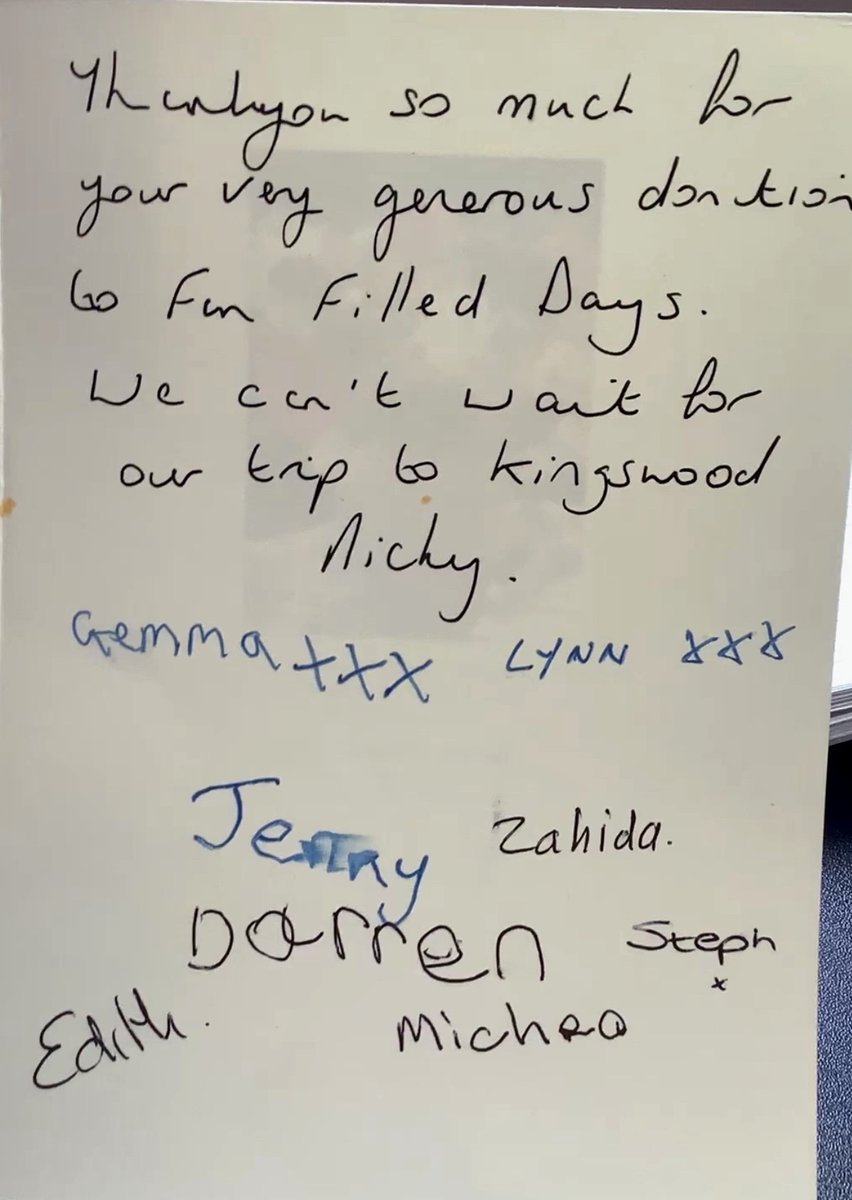 Thankyou so much for
your very generous donation
to Fun Filled Days.
We can't wait for
our trip to Kingswood
Nicky.
Gemma xxx LYNN xxx
Jenny Zahida.
Darren Steph
x
Edith. Michea